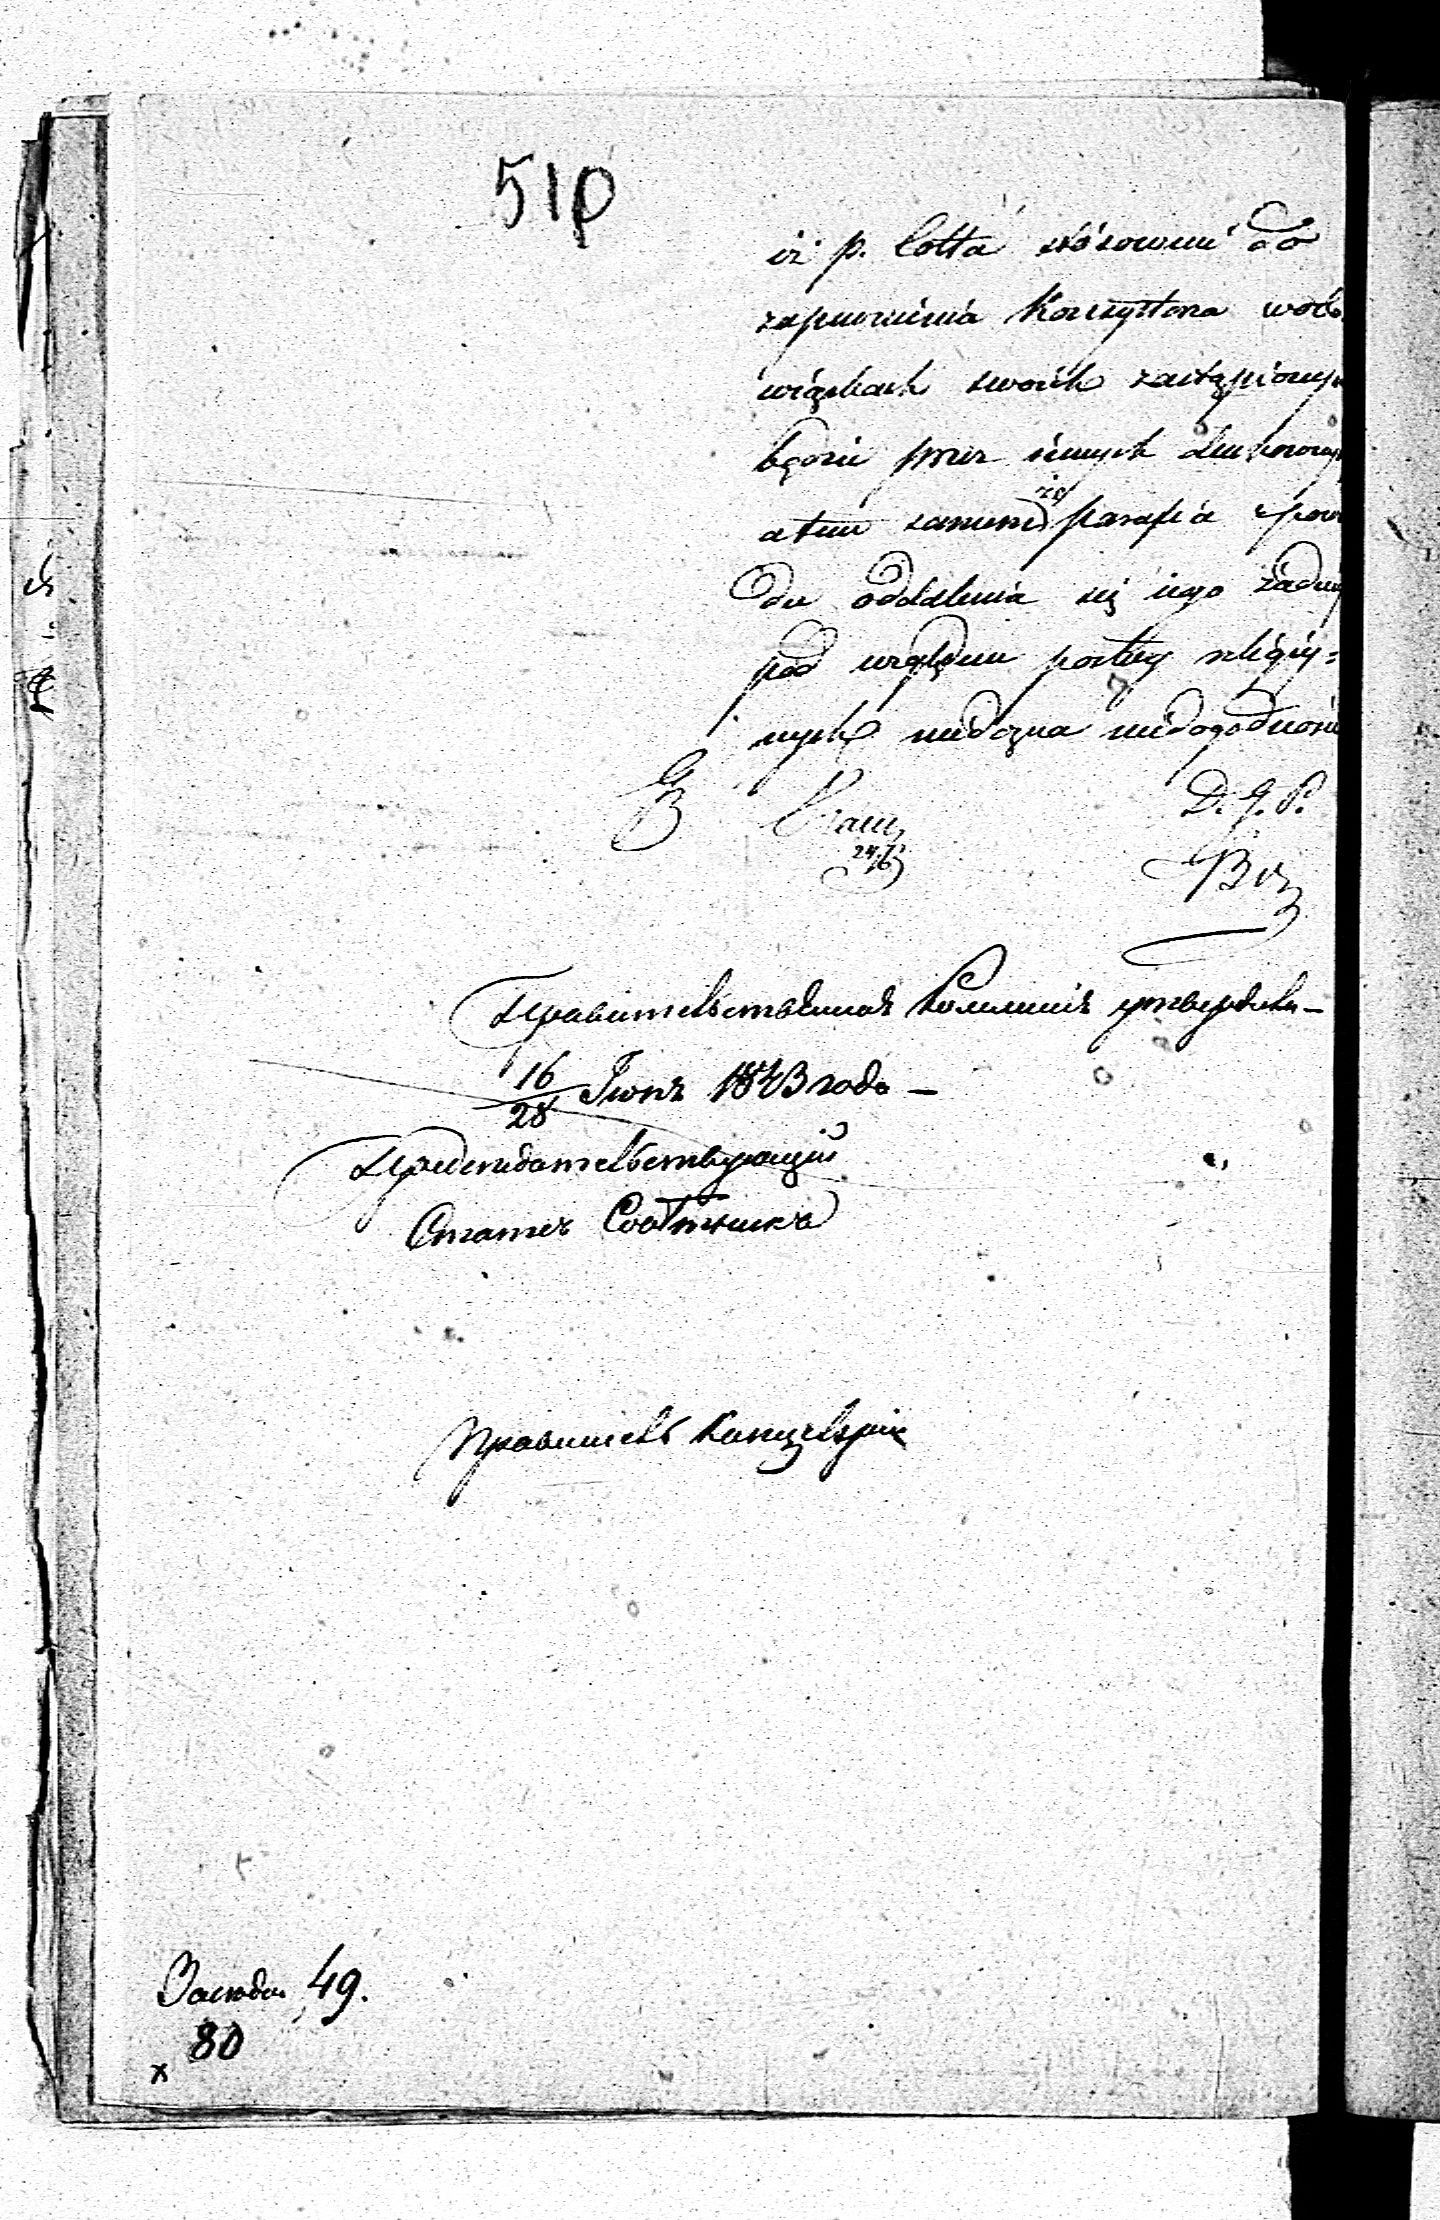 51p
iż p. Cotta stósownie do
zapewnienia Konsystorza wobo
wiązkach swoich zastąpionym
będzie przez innych duchownych
a tem samem że parafia z powo
du oddalenia się iego żadnej
pod względem posług religij=
nych niedozna niedogodności
D. G. P.
24/6
Правительственная Коммисія утвердила –
16/28 Іюня 1843 года –
Предсѣдательствующій
Статсъ Совѣтникъ
Правитель Канцеляріи
49.
80
x